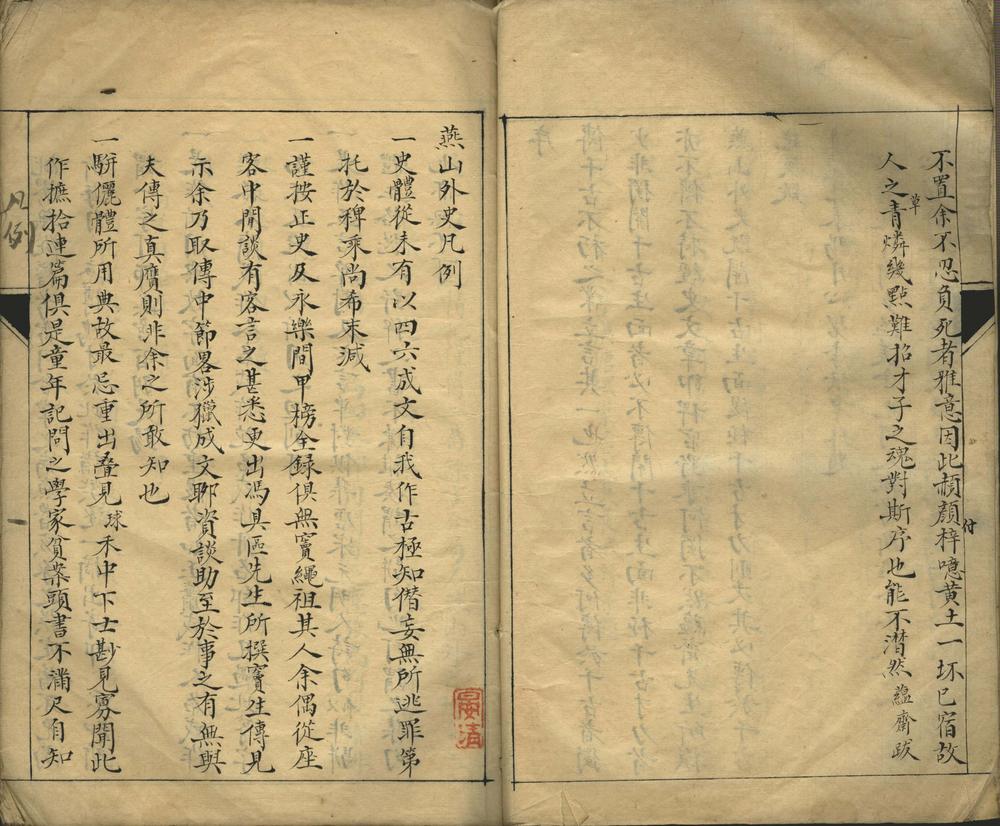 不置余不忍負死者雅意因此頳顏梓噫黄土一坏已宿故付
人之青草燐幾點難招才子之魂對斯序也能不潸然蘊齋跋
燕山外史凡例
一史體從未有以四六成文自我作古極知僭妄無所逃罪第
托於稗乘尚希末減
一謹按正史及永樂間甲榜全録俱無竇繩祖其人余偶從座
客中閒談有客言之甚悉更出馮具區先生所撰竇生傳見
示余乃取傳中節畧涉獵成文聊資談助至於事之有無與
夫傳之真贋則非余之所敢知也
一駢儷體所用典故最忌重出叠見球禾中下士尠見寡聞此
作摭拾連篇俱是童年記問之學家貧案頭書不滿尺自知
凡例